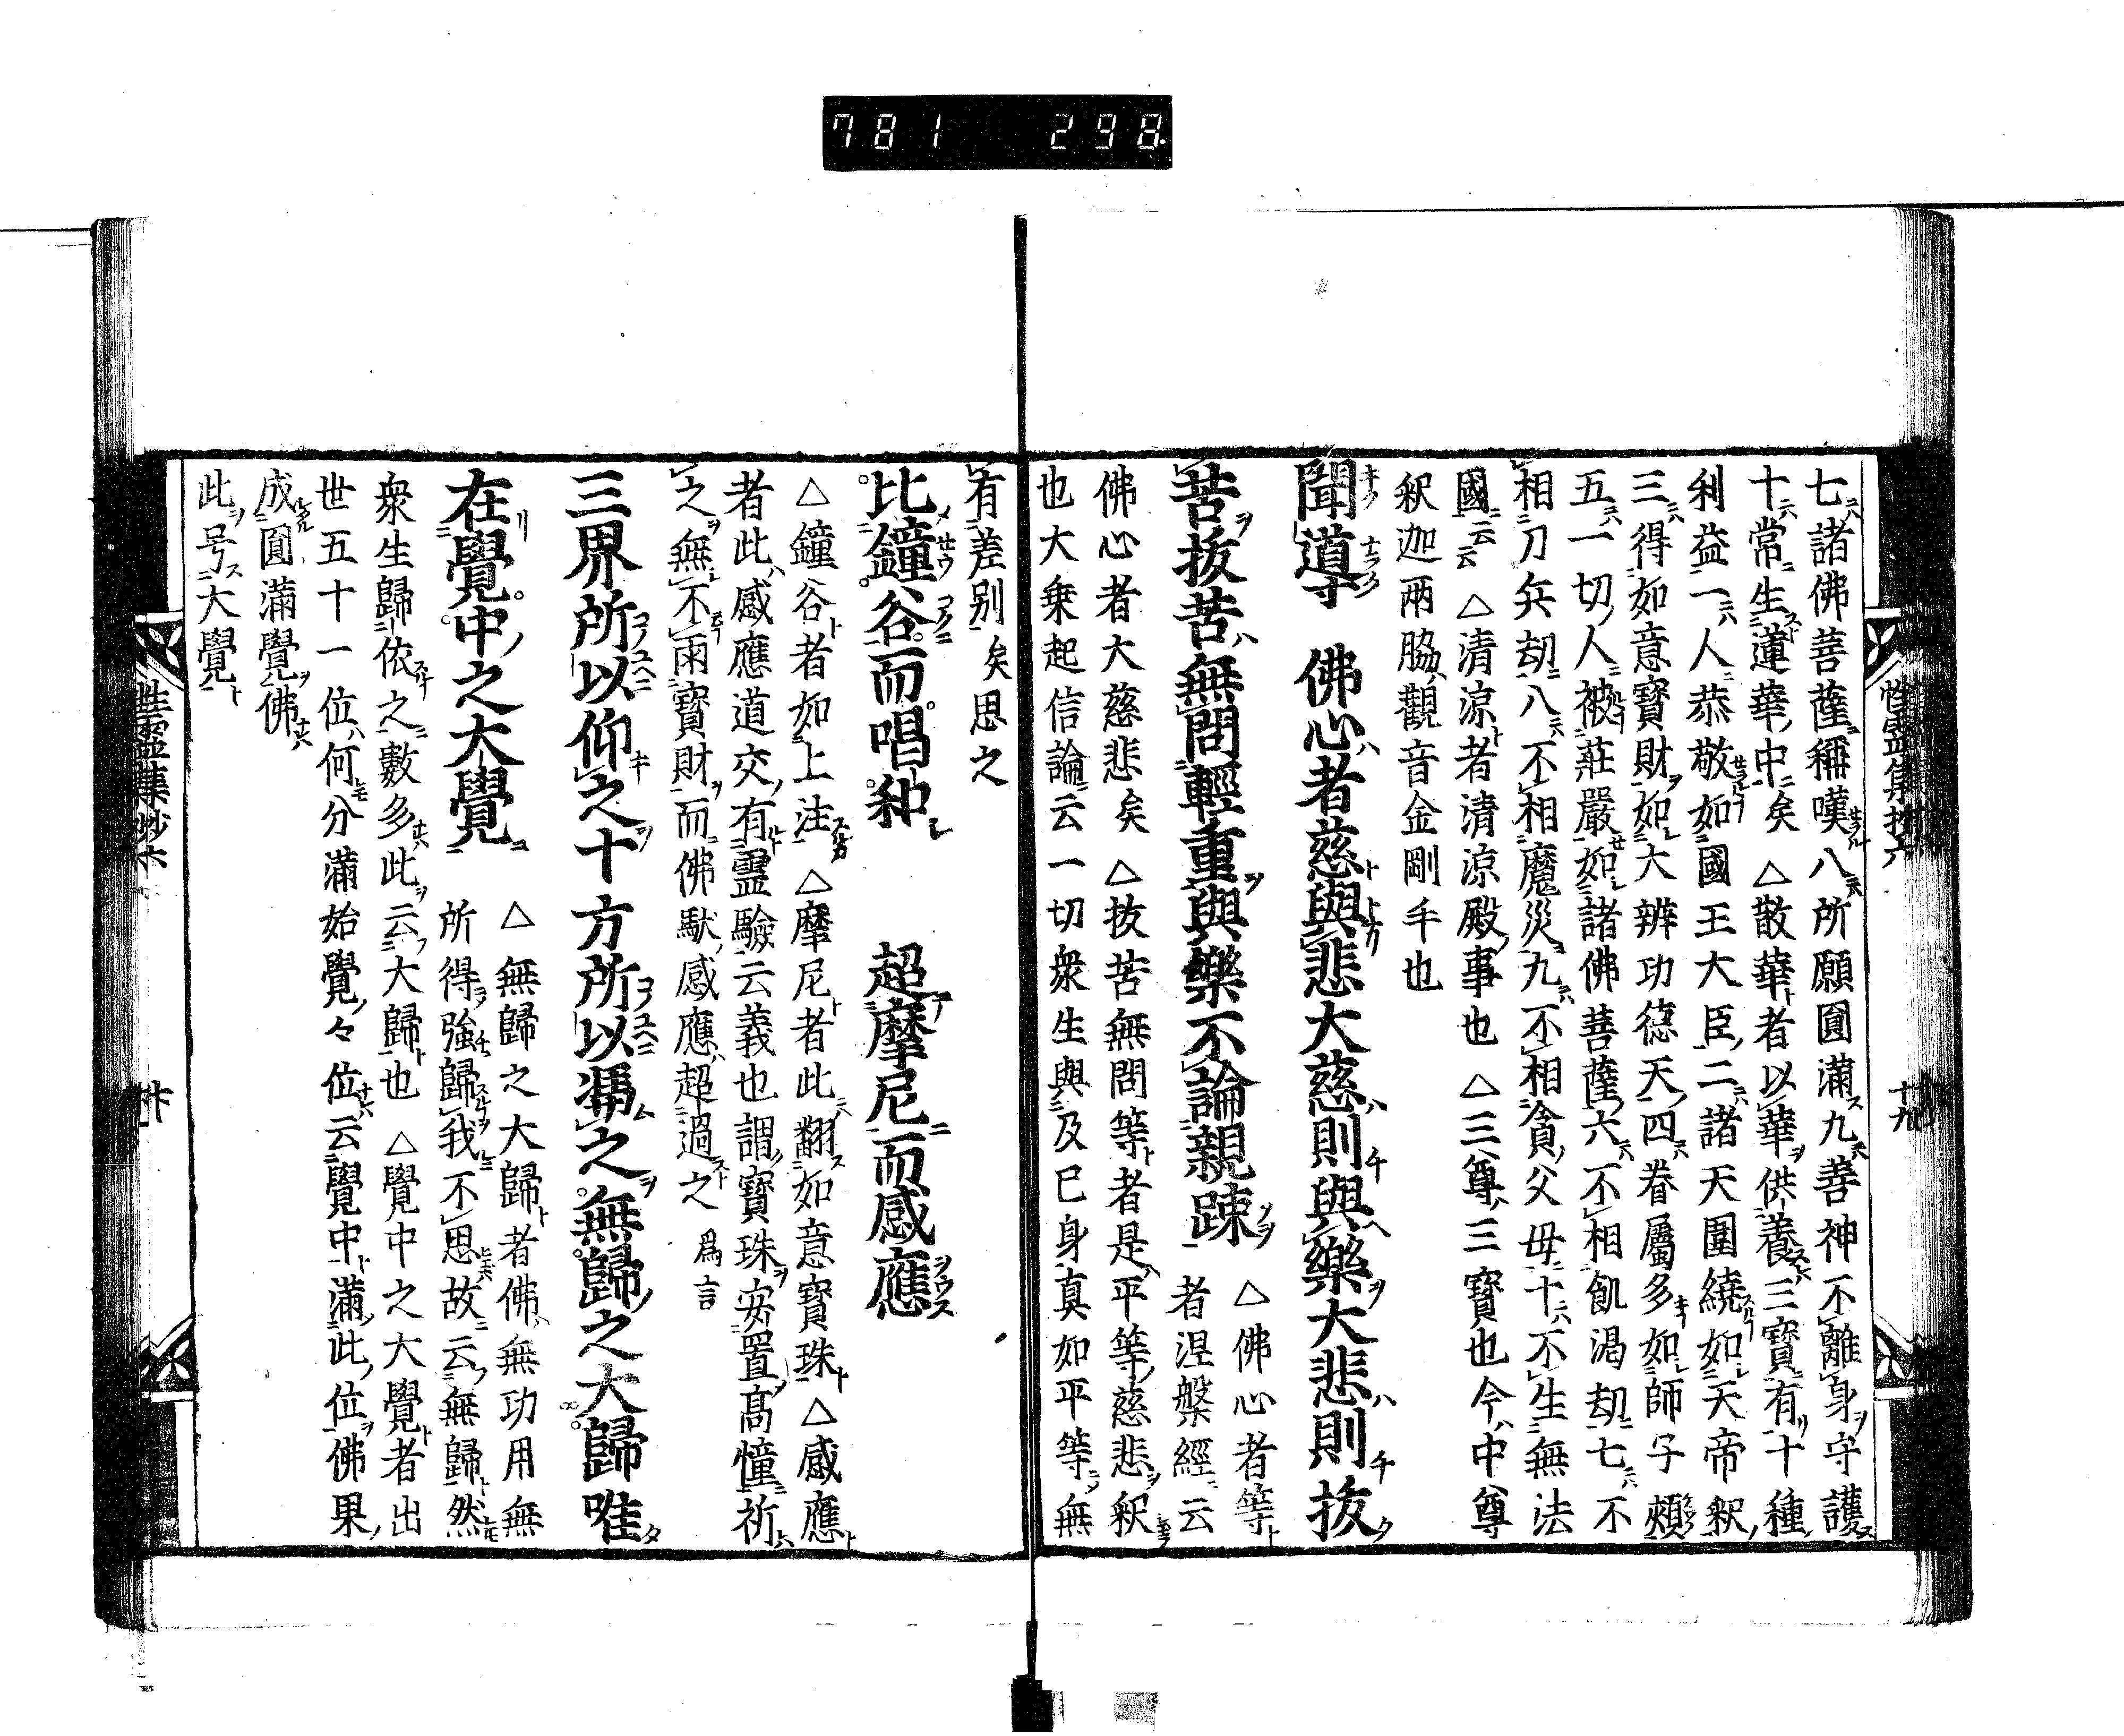 781 298
七諸佛菩薩稱嘆八所願圓滿九善神不離身守護
十常生蓮華中矣△散華者以華供養三寶有十種
利益一人恭敬如國王大臣二諸天圍繞如天帝釈
三得如意寶財如大辨功德天四眷屬多如師子頰
五一切人被莊嚴如諸佛菩薩六不相飢渴劫七不
相刀兵劫八不相魔災九不相貪父母十不生無法
國云云△清涼者清涼殿事也△三尊三寶也今中尊
釈迦兩脇觀音金剛手也
聞導佛心者慈與悲大慈則與樂大悲則拔
苦拔苦無問輕重與樂不論親踈
△佛心者等
者涅槃經云
佛心者大慈悲矣△拔苦無問等者是平等慈悲釈
也大乗起信論云一切衆生與及已身真如平等無
有差别矣思之
比鐘谷而唱和超摩尼而感應
△鐘谷者如上注△摩尼者此翻如意寶珠△感應
者此感應道交有靈驗云義也謂寶珠安置高幢祈
之無不雨寶財而佛猷感應超過之爲言
三界所以仰之十方所以馮之無歸之大歸唯
在覺中之大覺
△無歸之大歸者佛無功用無
所得強歸我不思故云無歸然
衆生歸依之數多此云大歸也△覺中之大覺者出
世五十一位何分滿始覺々位云覺中滿此位佛果
成圓滿覺佛
此号大覺
性霊集抄六
十九
性霊集抄六
廿